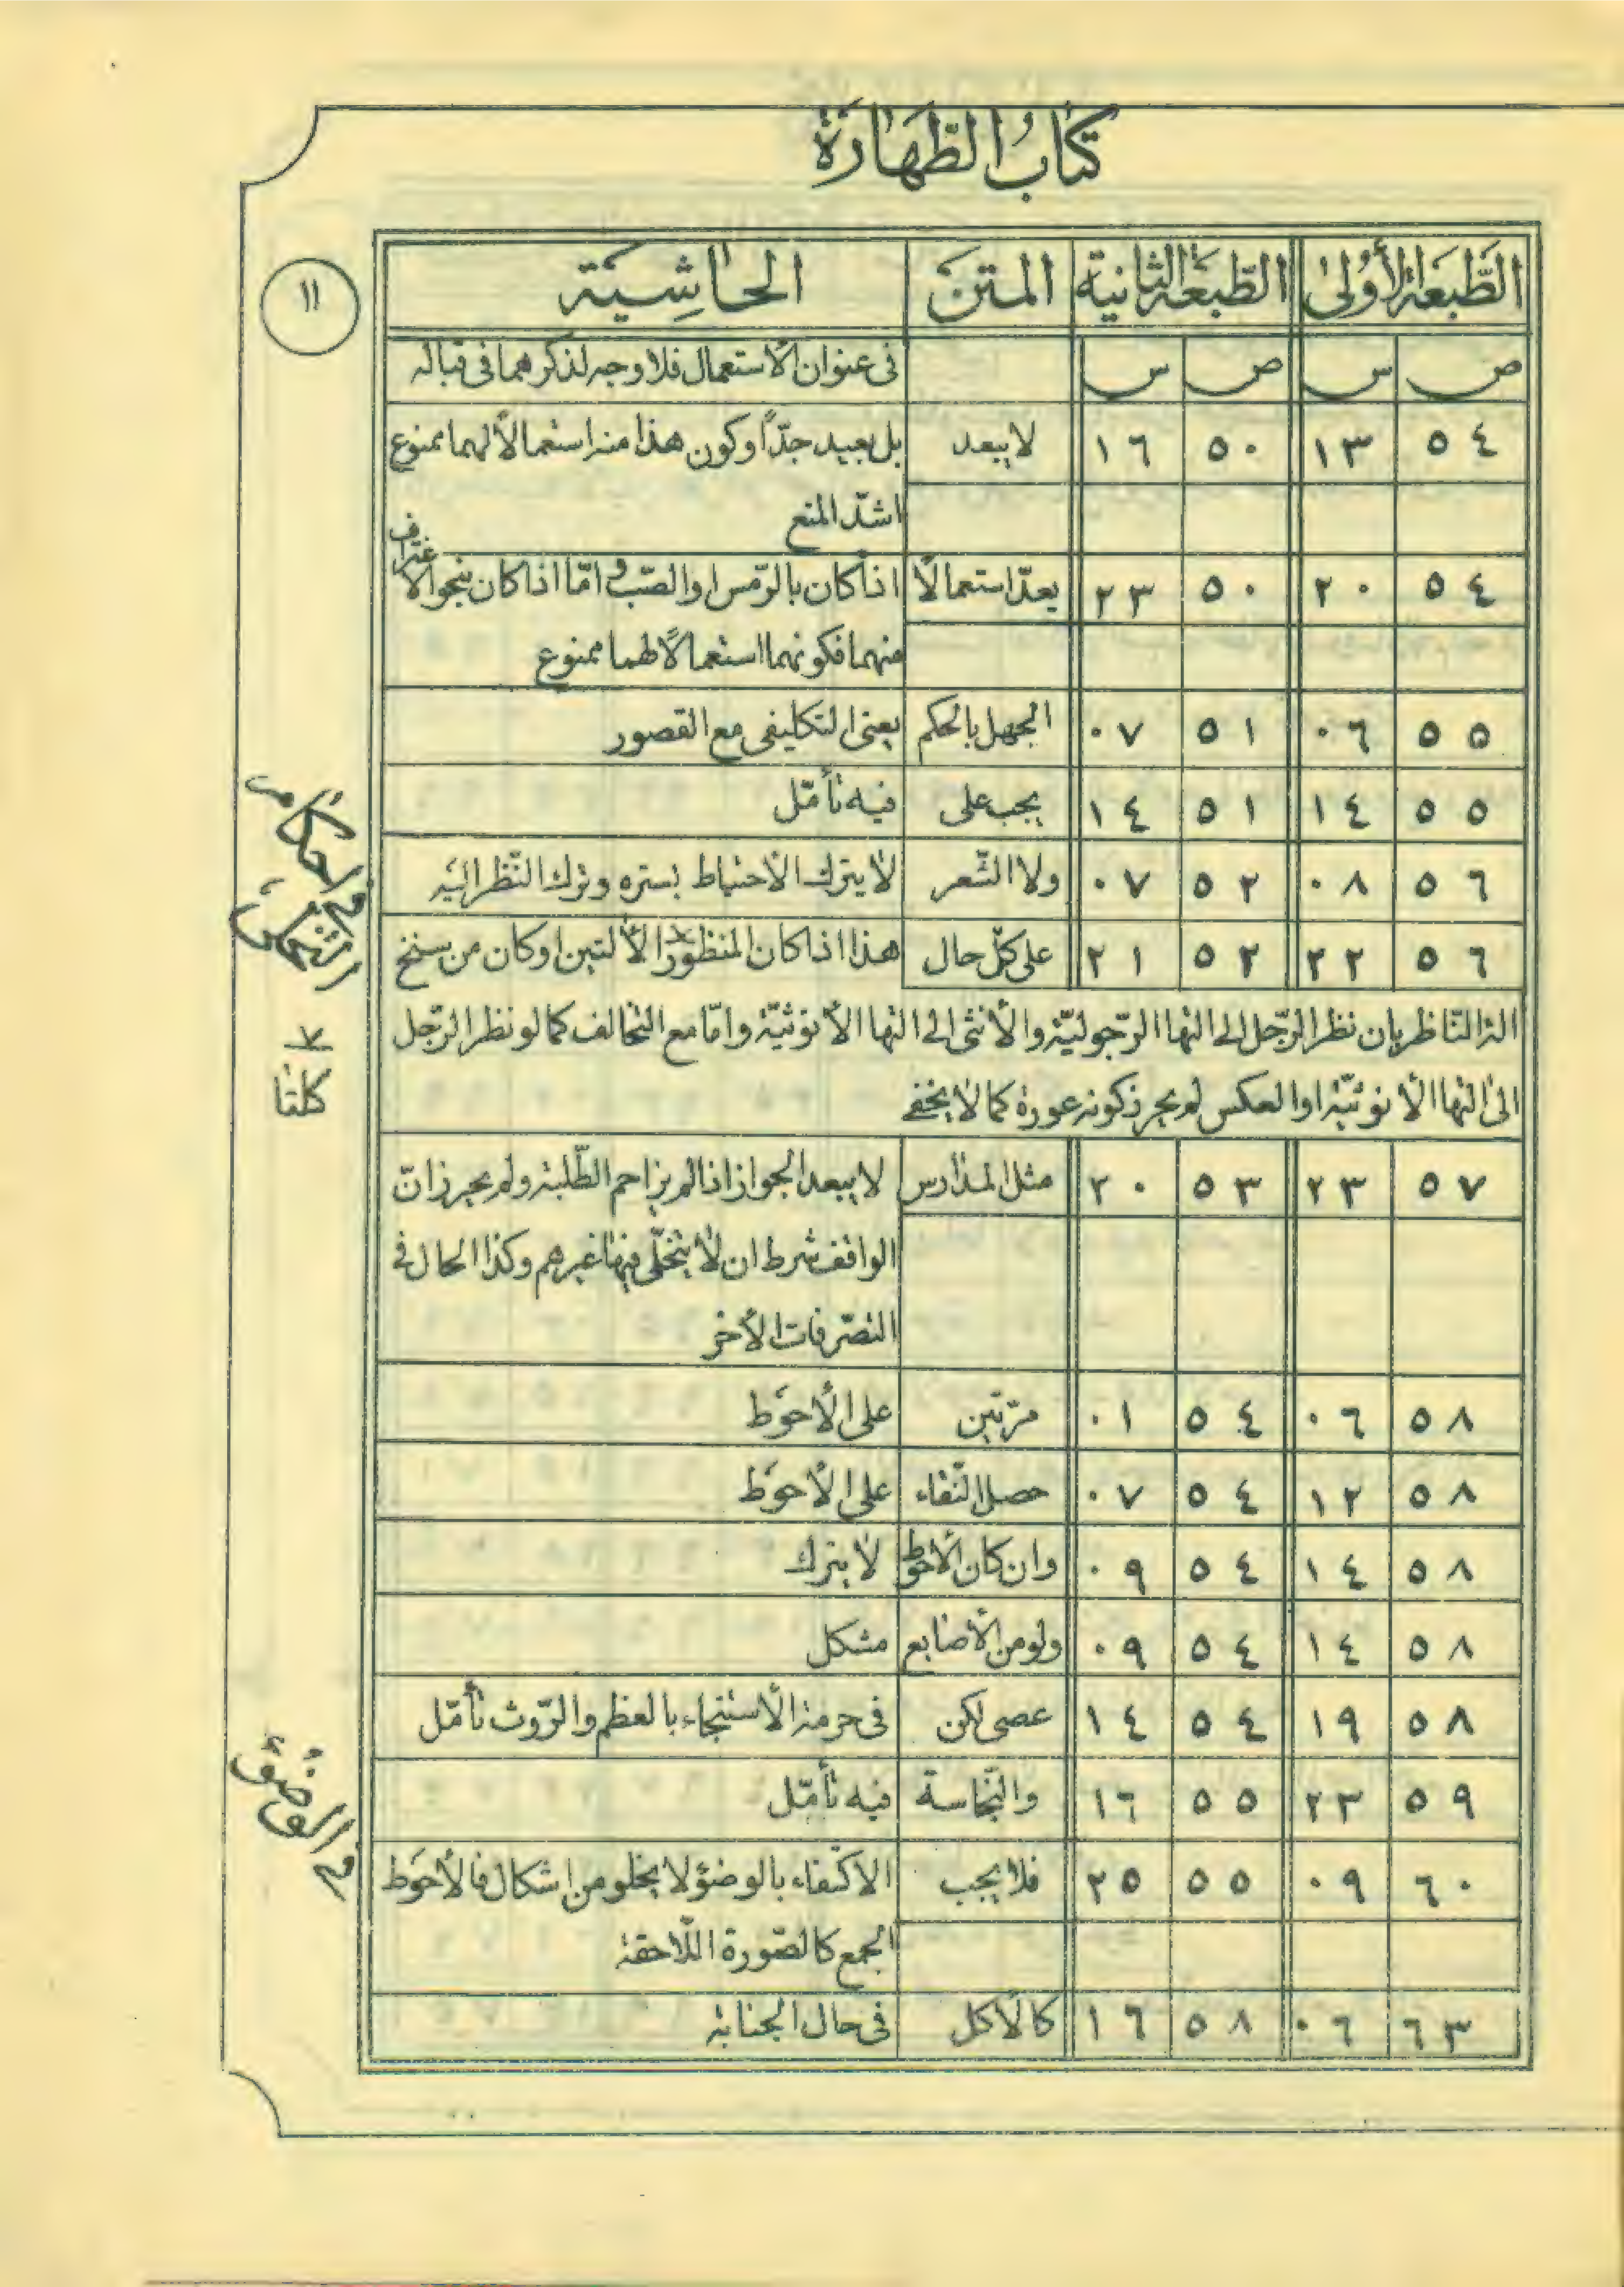 كتاب الطّهارة
١١
الطّبعة الأولى الطّبعة الثّانية المتن الحاشية
ص س ص س في عنوان الاستعمال فلا وجه لذكرهما في قباله
٥٤ ١٣ ٥٠ ١٦ لا يبعد بل بعيد جدّاً وكون هذا منه استعمالاً لهما ممنوع
اشدّ المنع
٥٤ ٢٠ ٥٠ ٢٣ يعدّ استعمالاً اذا كان بالرّمس او الصّب وامّا اذا كان بنحو الاغتراف
منهما فكونهما استعمالاً لهما ممنوع
٥٥ ٠٦ ٥١ ٠٧ الجهل بالحكم يعنى التكليفى مع القصور
٥٥ ١٤ ٥١ ١٤ يجب على فيه تأمّل
٥٦ ٠٨ ٥٢ ٠٧ ولا الشّعر لا يترك الاحتياط بستره وترك النّظر اليه
٥٦ ٢٢ ٥٢ ٢١ على كلّ حال هذا اذا كان المنظور الآلتين او كان من سنخ
في احكام
كلتا
آلة النّاظر بان نظر الرّجل الى التها الرّجوليّة والأنثى الى التها الأنوثيّة وامّا مع التخالف كما لو نظر الرّجل
الى التها الأنوثيّة او العكس لم يحرز كونه عورة كما لا يخفى
٥٧ ٢٣ ٥٣ ٢٠ مثل المدارس لا يبعد الجواز اذا لم يزاحم الطّلبة ولم يحرز انّ
الواقف شرط ان لا يتخلّى فيها غيرهم وكذا الحال في
التصرّفات الأخر
٥٨ ٠٦ ٥٤ ٠١ مرّتين على الأحوط
٥٨ ١٢ ٥٤ ٠٧ حصل النّقاء على الأحوط
٥٨ ١٤ ٥٤ ٠٩ وان كان الأحوط لا يترك
٥٨ ١٤ ٥٤ ٠٩ ولو من الأصابع مشكل
٥٨ ١٩ ٥٤ ١٤ عصى لكن في حرمة الاستنجاء بالعظم والرّوث تأمّل
٥٩ ٢٣ ٥٥ ١٦ والنّجاسة فيه تأمّل
في الوضوء
٦٠ ٠٩ ٥٥ ٢٥ فلا يجب الاكتفاء بالوضوء لا يخلو من اشكال فالأحوط
الجمع كالصّورة اللّاحقة
٦٣ ٠٦ ٥٨ ١٦ كالأكل في حال الجنابة